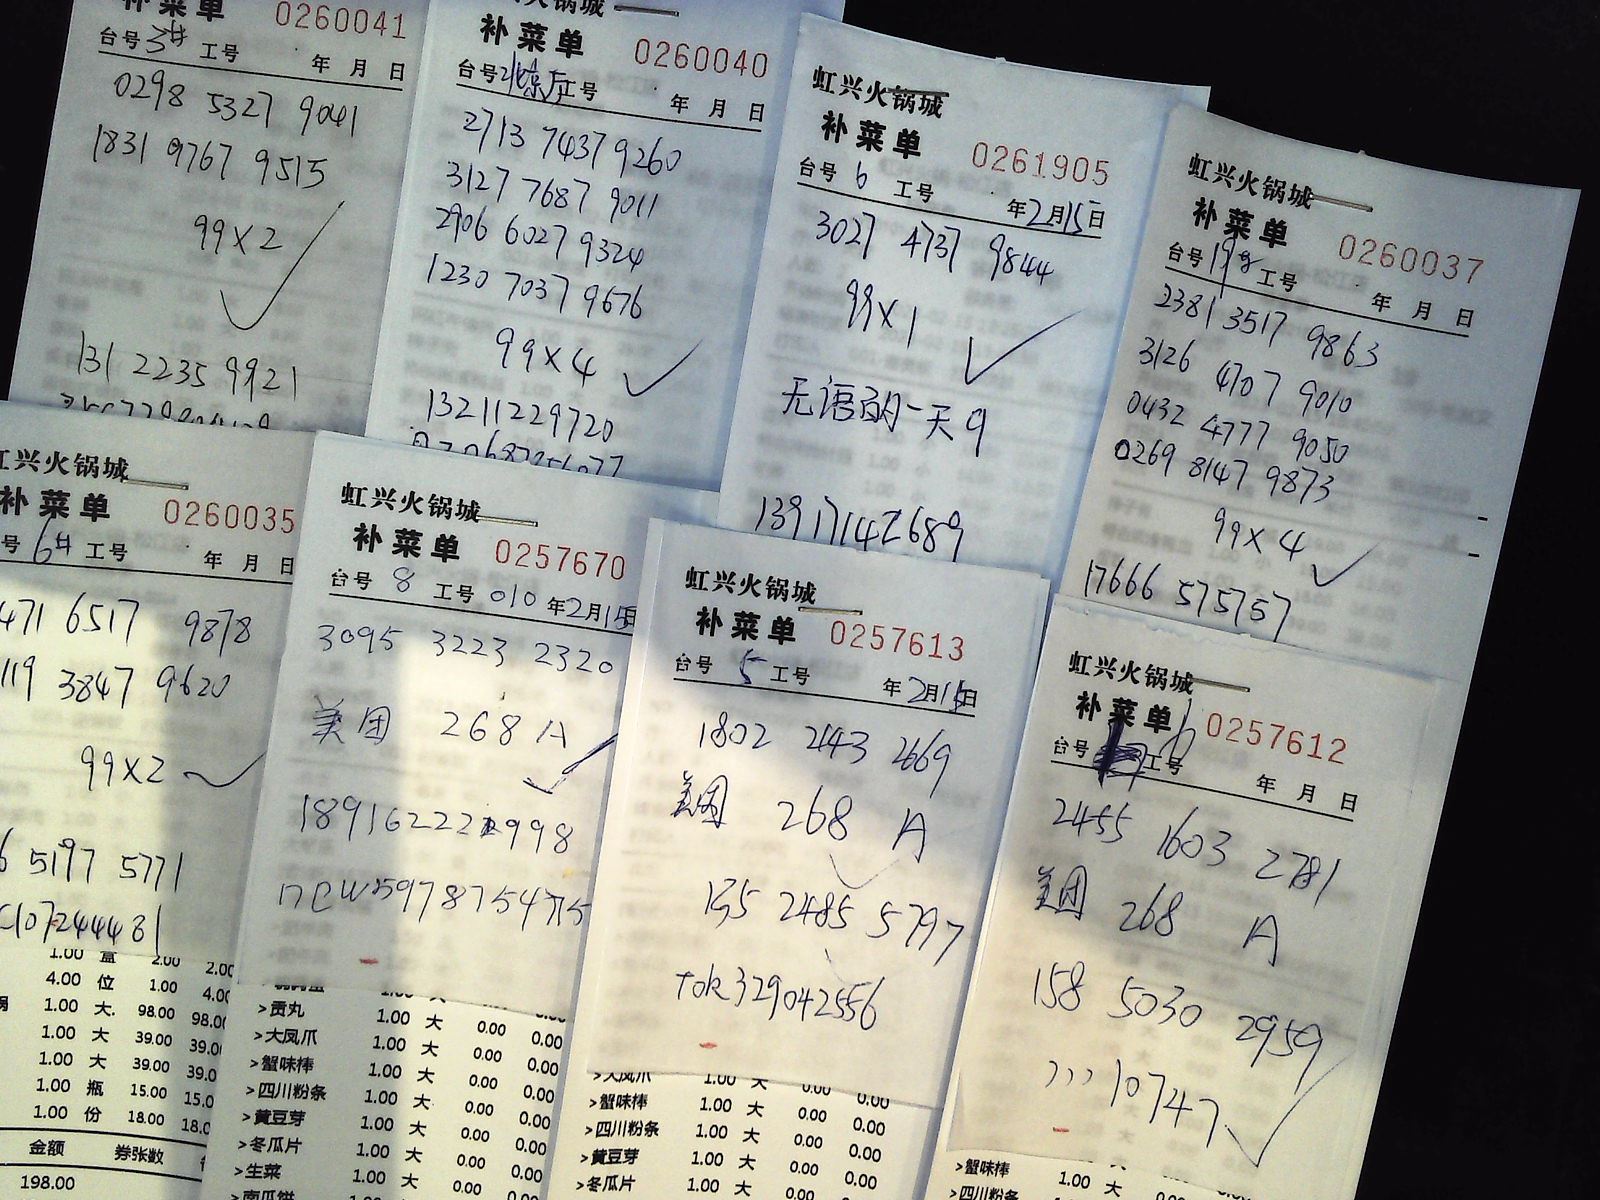 补菜单 0260041
台号 3# 工号 年 月 日
0298 5327 9041
1831 9767 9515
99X2
131 2235 9921
火锅城
补菜单 0260040
台号 北京厅 工号 年 月 日
2713 7437 9260
3127 7687 9011
2906 6027 9324
1230 7037 9676
99X4
13211229720
虹兴火锅城
补菜单 0261905
台号 6 工号 年2月15日
3027 4737 9844
99X1
无语的一天9
13917142689
虹兴火锅城
补菜单 0260037
台号 19# 工号 年 月 日
2381 3517 9863
3126 4707 9010
0432 4777 9050
0269 8147 9873
99X4
17666 575757
虹兴火锅城
补菜单 0260035
号 6# 工号 年 月 日
471 6517 9878
119 3847 9620
99X2
6 5197 5771
C1072444481
1.00 盒 2.00 2.00
4.00 位 1.00 4.00
1.00 大. 98.00 98.0
1.00 大 39.00 39.0
1.00 大 39.00 39.0
1.00 瓶 15.00 15.0
1.00 份 18.00 18.0
金额 券张数
198.00
虹兴火锅城
补菜单 0257670
台号 8 工号 010 年2月15日
3095 3223 2320
美团 268 A
18916222998
>贡丸 1.00 大 0.00 0.00
>大凤爪 1.00 大 0.00 0.00
>蟹味棒 1.00 大 0.00 0.00
>四川粉条 1.00 大 0.00 0.00
>黄豆芽 1.00 大 0.00 0.00
>冬瓜片 1.00 大 0.00 0.00
>生菜 1.00 大 0.00 0.00
>南瓜饼 1.00 大 0.00 0.00
虹兴火锅城
补菜单 0257613
台号 5 工号 年2月15日
1802 2443 2669
美团 268 A
135 2485 5797
tok329042556
>大凤爪 1.00 大 0.00 0.00
>蟹味棒 1.00 大 0.00 0.00
>四川粉条 1.00 大 0.00 0.00
>黄豆芽 1.00 大 0.00 0.00
>冬瓜片 1.00 大 0.00 0.00
虹兴火锅城
补菜单 0257612
台号 工号 年 月 日
2455 1603 2781
美团 268 A
158 5030 2959
>蟹味棒 1.00 大 0.00 0.00
>四川粉条 1.00 大 0.00 0.00